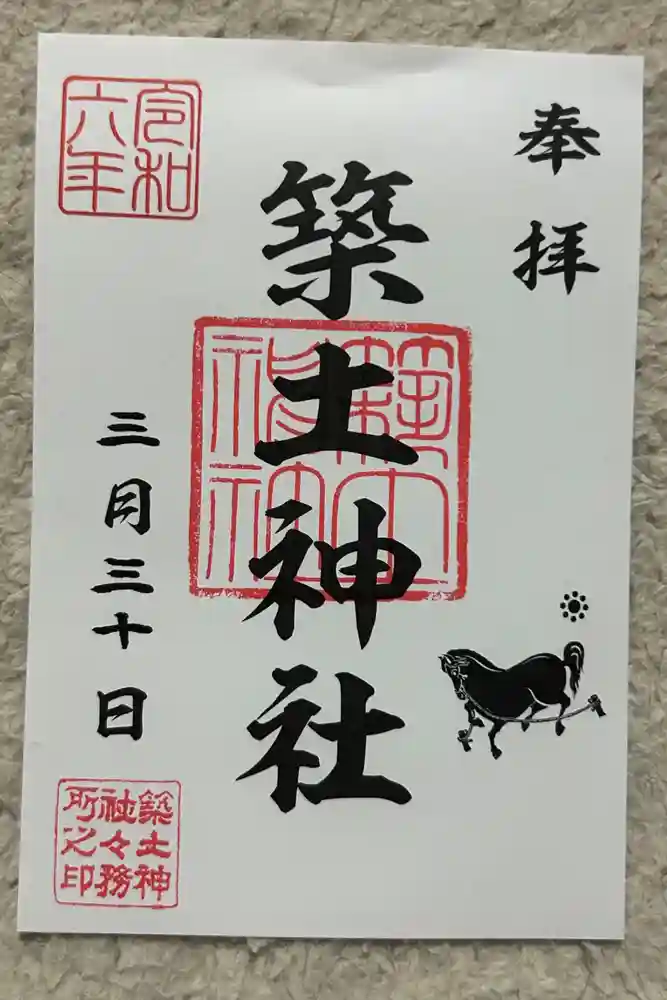 奉拝
築土神社
築土神社
令和
六年
三月三十日
築土神
社々務
所之印